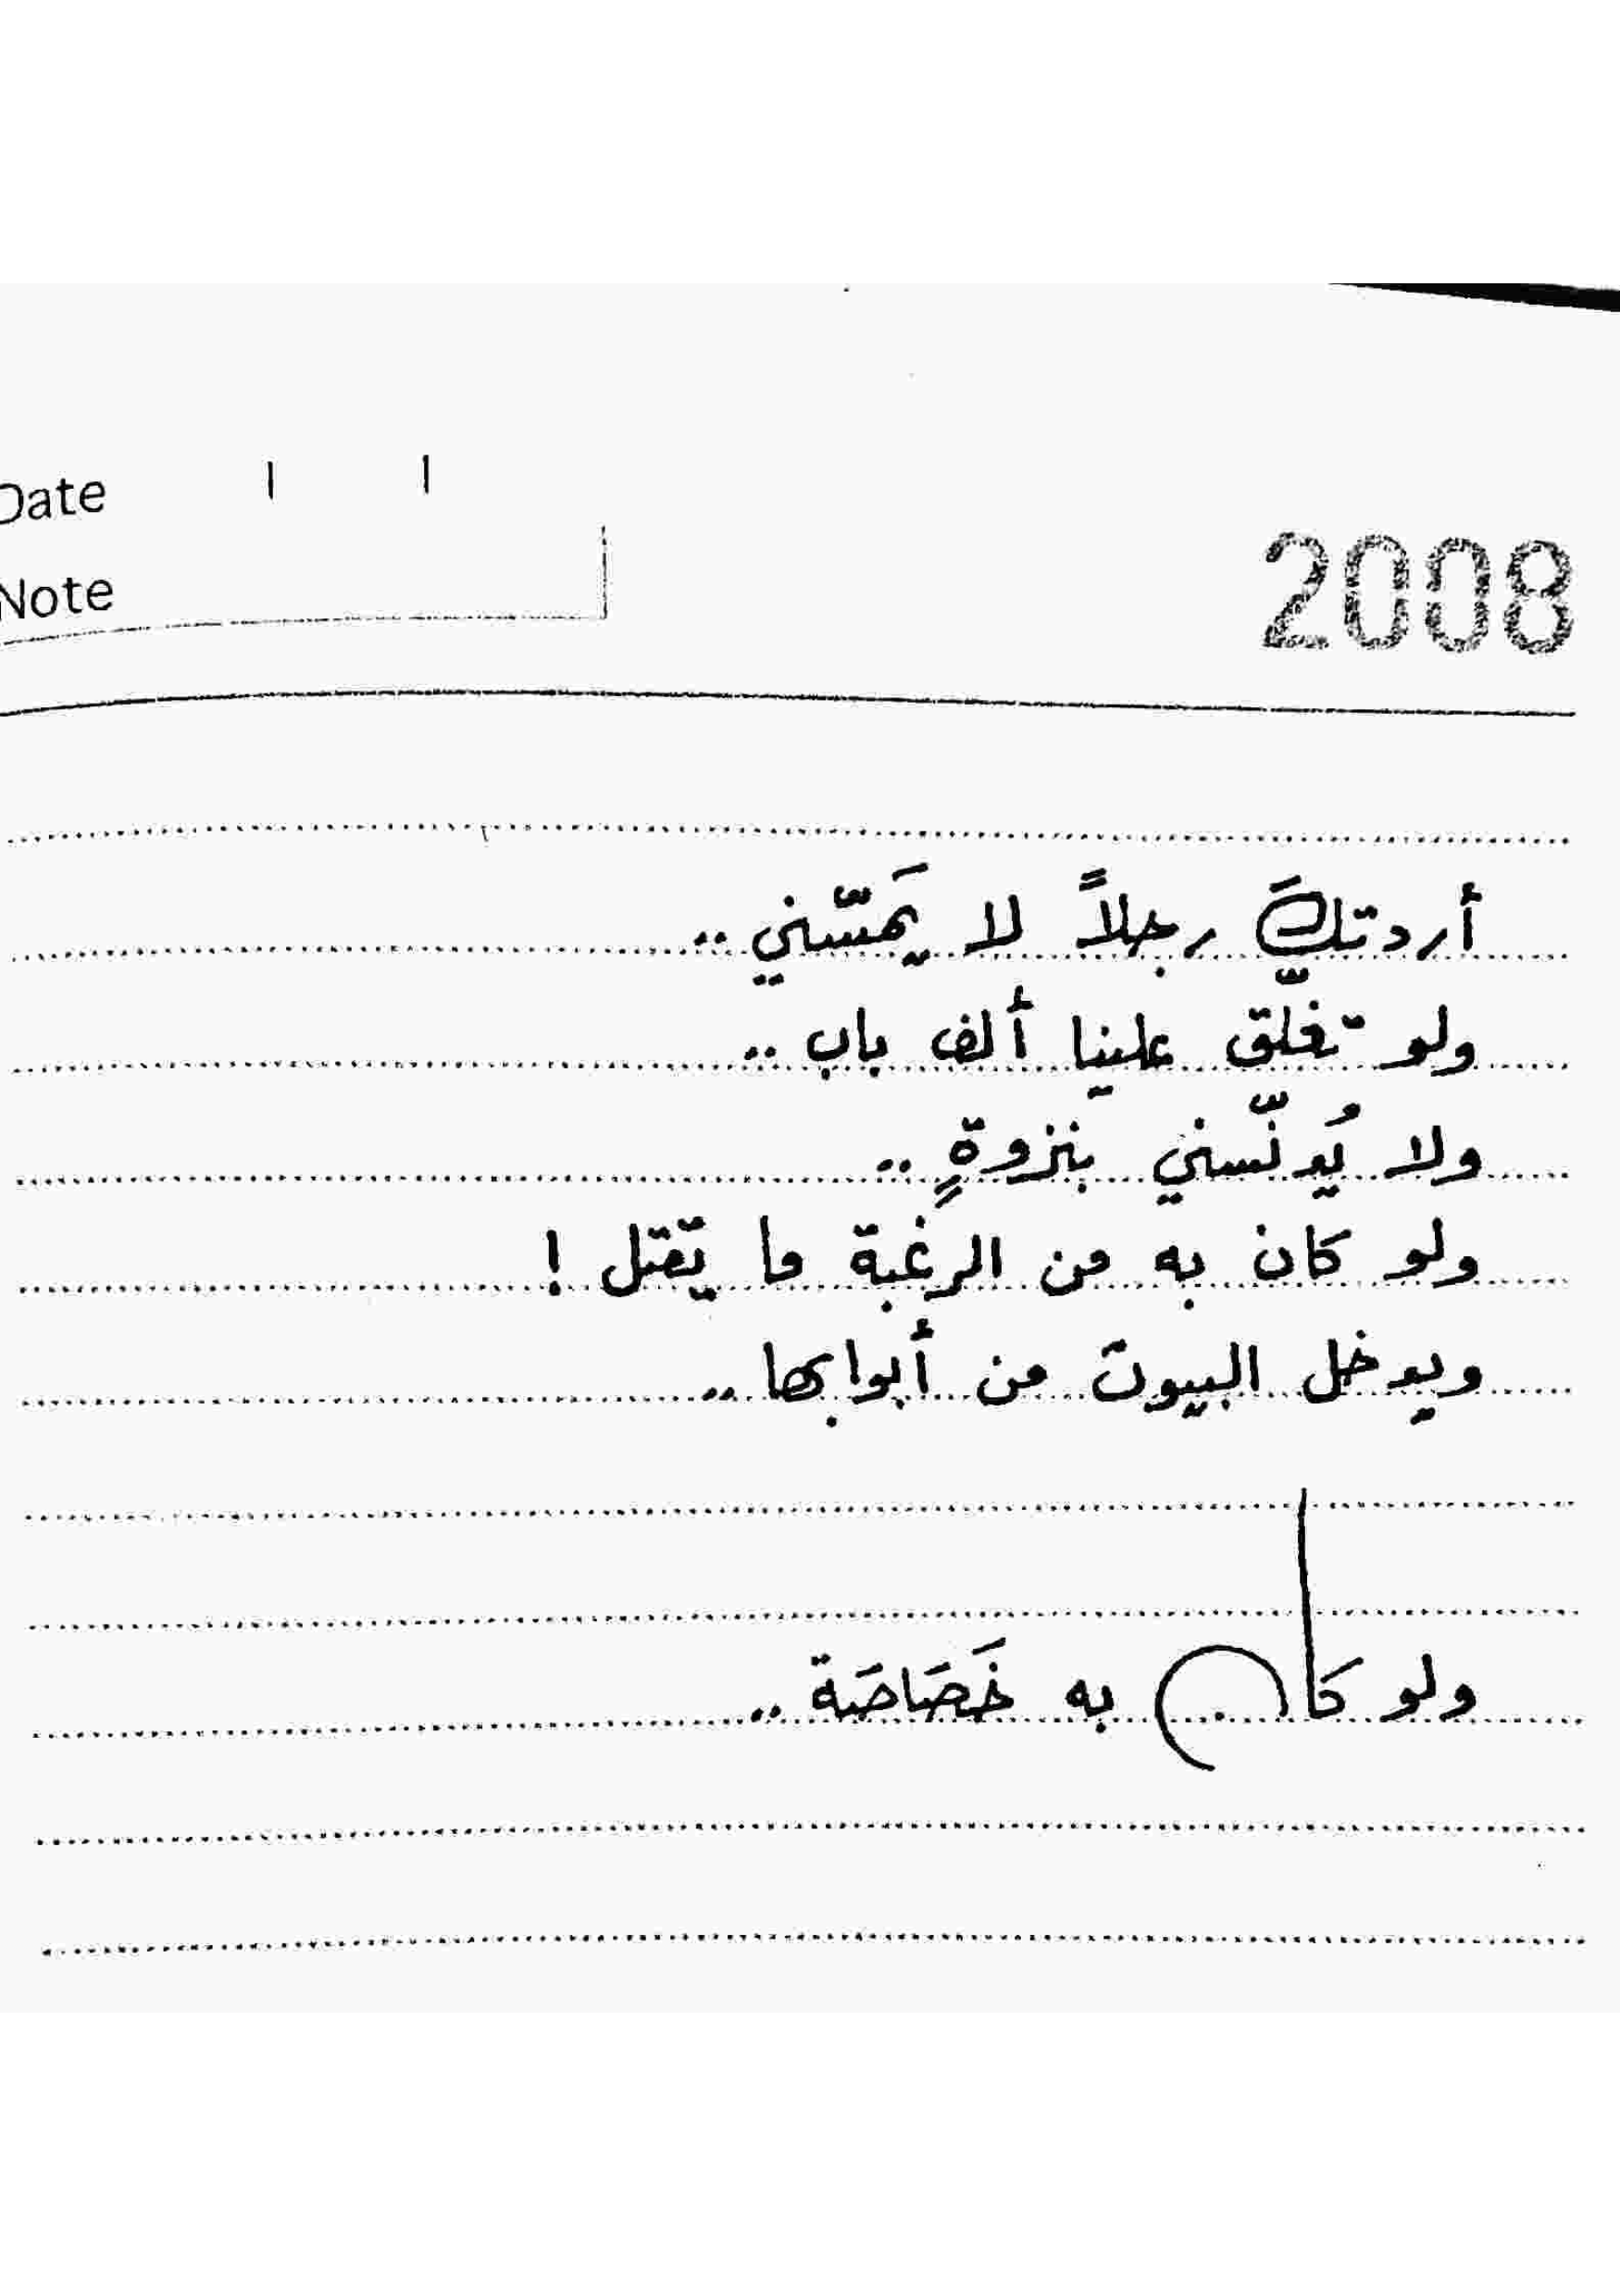 Date / /
Note
2008
أردتكَ رجلاً لا يَمسّني ..
ولو تغلّق علينا ألف باب ..
ولا يُدنّسني بنزوةٍ ..
ولو كان به من الرغبة ما يَقتل !
ويدخل البيوت من أبوابها ..
ولو كان به خَصَاصَة ..